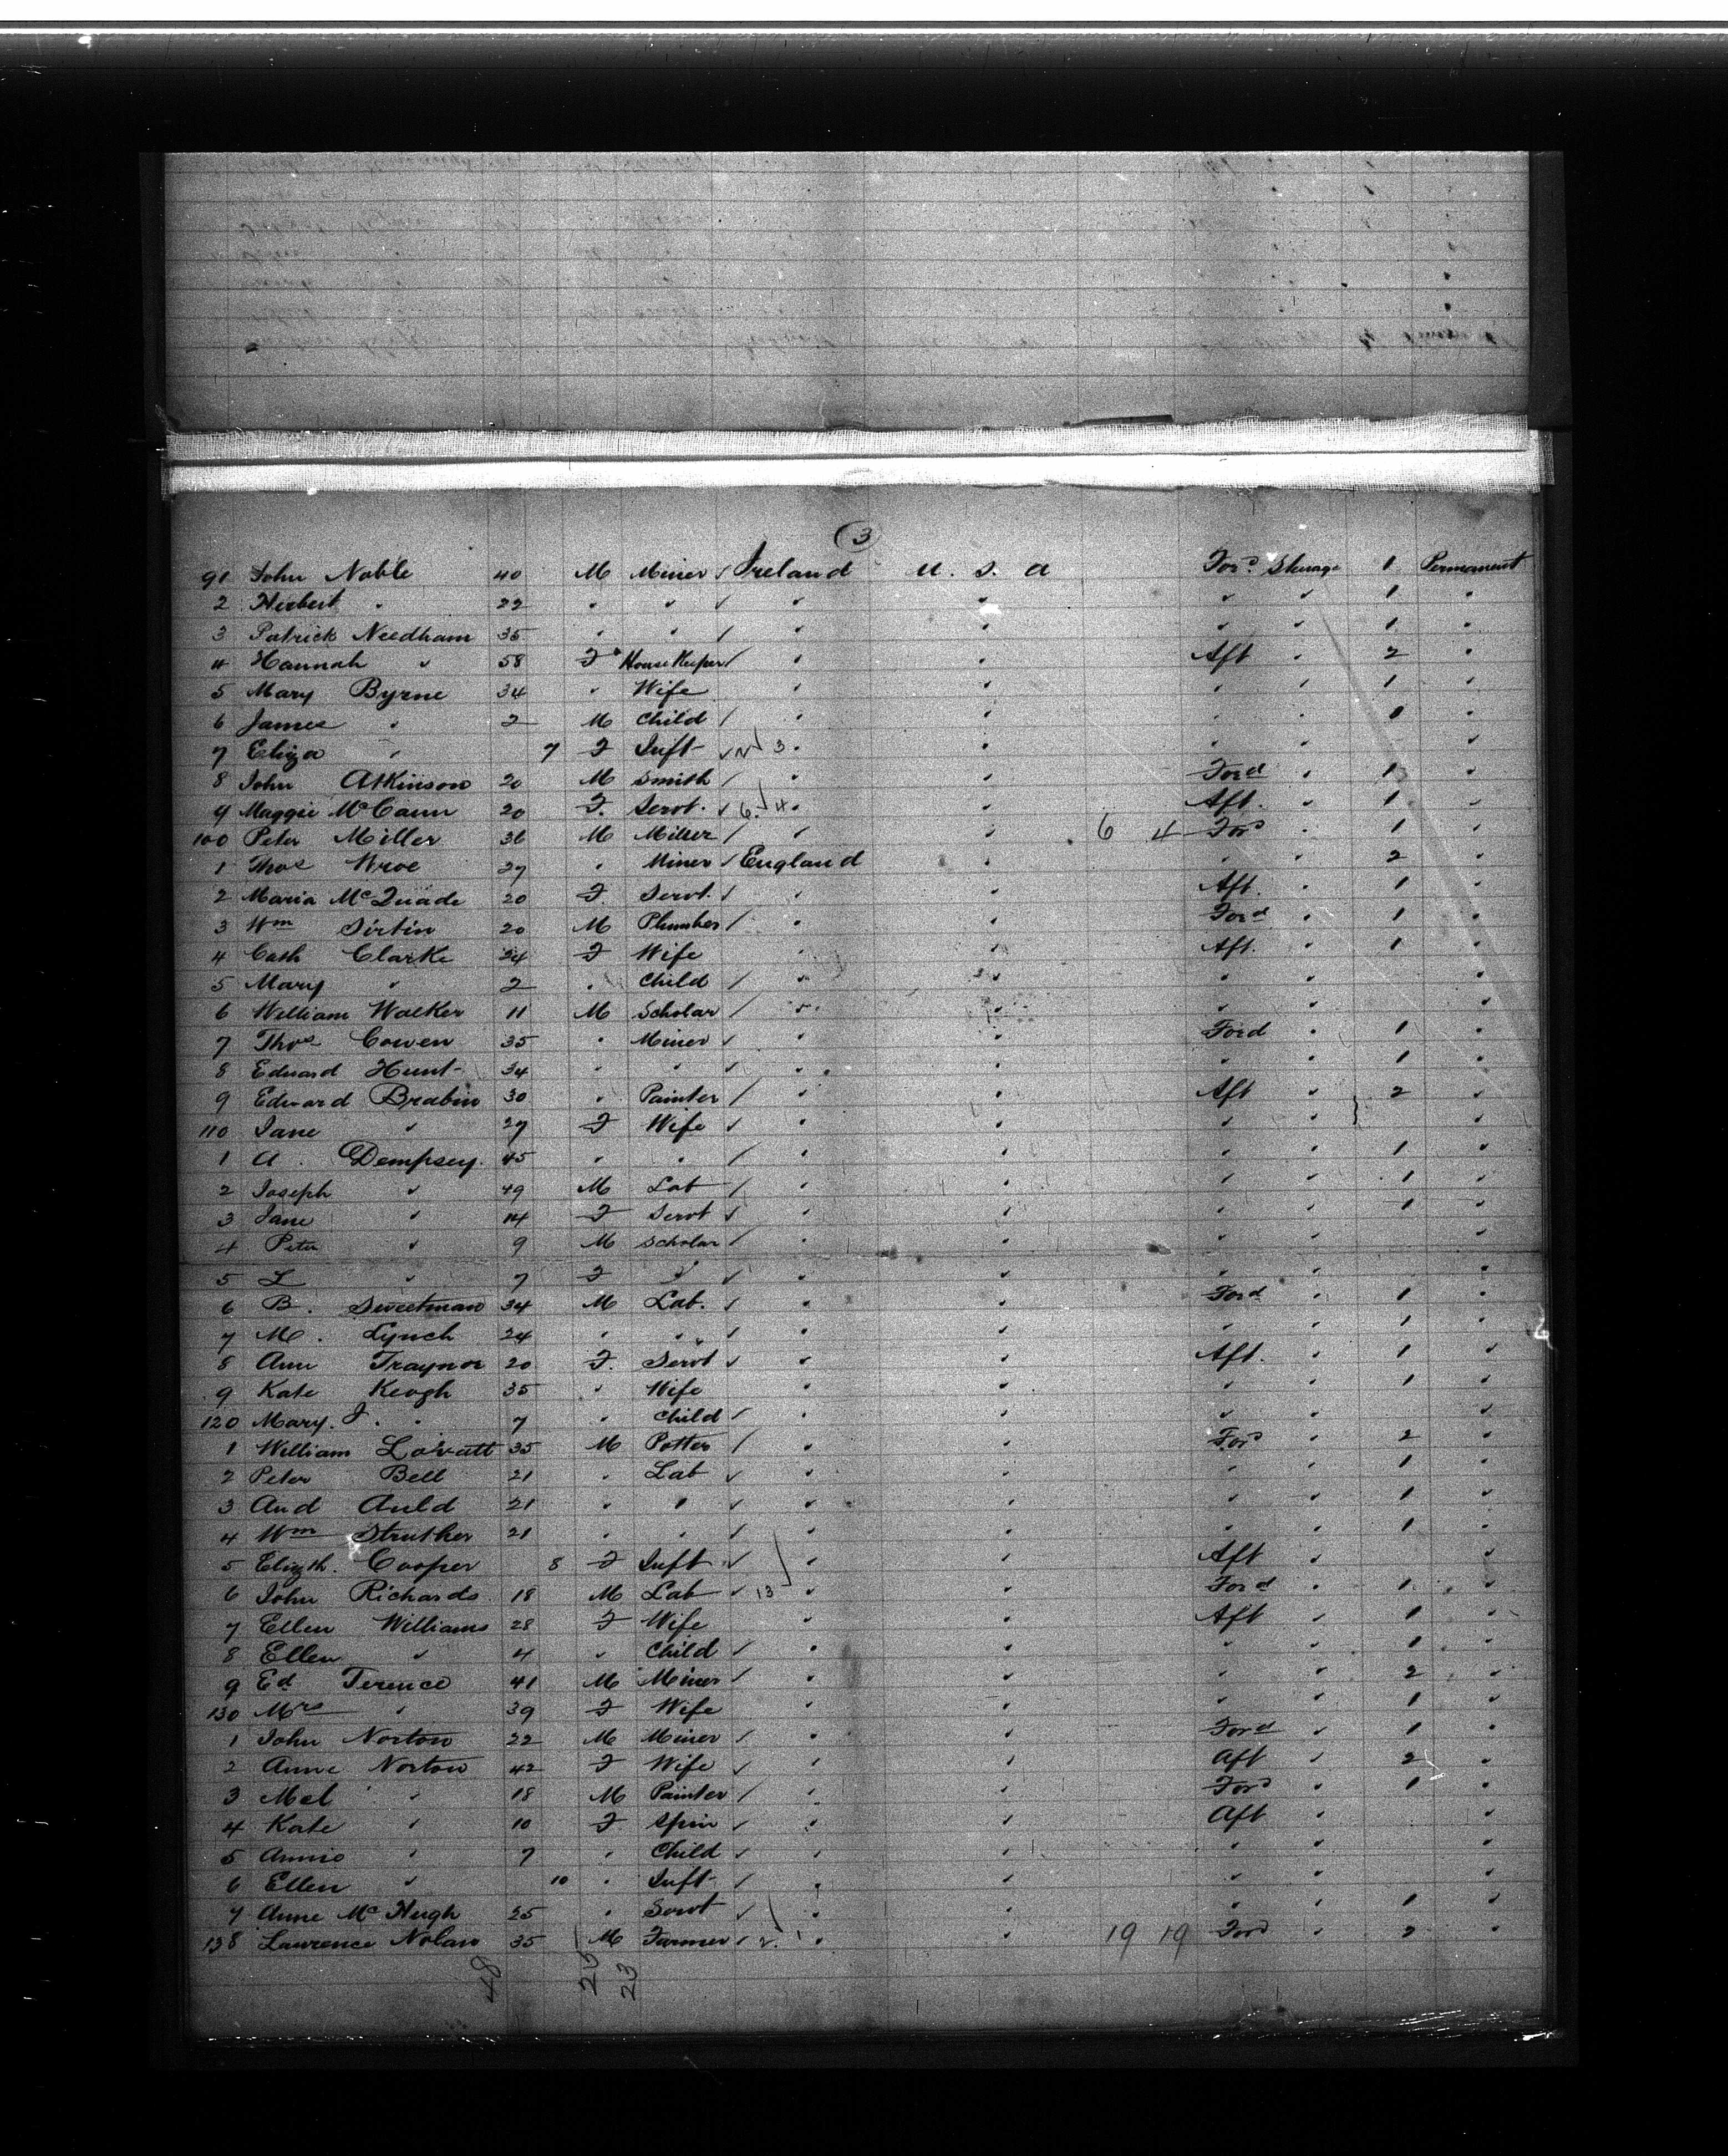 3
91 John Noble 40 M Miner / Ireland U. S. A For^d Sterage 1 Permanent
2 Herbert " 22 " " / " " " " 1 "
3 Patrick Needham 35 " " / " " " " 1 "
4 Hannah " 58 F HouseKeeper / " " Aft " 2 "
5 Mary Byrne 34 " Wife " " " " 1 "
6 James " 2 M Child / " " " " 1 "
7 Eliza " 7 F Inft / N 3 " " " " "
8 John Atkinson 20 M Smith / " " Ford " 1 "
9 Maggie McCann 20 F. Servt. / 6 4 " " Aft. " 1 "
100 Peter Miller 36 M Miller / " " 6 4 For^d " 1 "
1 Thos Wroe 27 " Miner / England " " " 2 "
2 Maria McQuade 20 F. Servt. / " " Aft. " 1 "
3 Wm Sirtin 20 M Plumber / " " Ford " 1 "
4 Cath Clarke 24 F Wife " " Aft. " 1 "
5 Mary " 2 " Child / " " " " "
6 William Walker 11 M Scholar / " " " " "
7 Thos Cowen 35 " Miner / " " Ford " 1 "
8 Edward Hunt 34 " " / " " " " 1 "
9 Edward Brabin 30 " Painter / " " Aft " 2 "
110 Jane " 27 F Wife / " " " " } "
1 A. Dempsey. 45 " " / " " " " 1 "
2 Joseph " 49 M Lab / " " " " 1 "
3 Jane " 14 F Servt / " " " " 1 "
4 Peter " 9 M Scholar / " " " " "
5 L " 7 F " / " " " " "
6 B. Sweetman 34 M Lab. / " " Ford " 1 "
7 M. Lynch 24 " " / " " " " 1 "
8 Ann Traynor 20 F. Servt / " " Aft. " 1 "
9 Kate Keogh 35 " Wife " " " " 1 "
120 Mary. J. " 7 " Child / " " " " "
1 William Lovatt 35 M Potter / " " For^d " 2 "
2 Peter Bell 21 " Lab / " " " " 1 "
3 And Auld 21 " " / " " " " 1 "
4 Wm Struther 21 " " / " " " " 1 "
5 Elizth. Cooper 8 F Inft / " " Aft " "
6 John Richards 18 M Lab / 13 " " Ford " 1 "
7 Ellen Williams 28 F Wife " " Aft " 1 "
8 Ellen " 4 " Child / " " " " 1 "
9 Ed Terence 41 M Miner / " " " " 2 "
130 Mrs " 39 F Wife " " " " 1 "
1 John Norton 22 M Miner / " " Ford " 1 "
2 Anne Norton 42 F Wife / " " Aft " 2 "
3 Mcl " 18 M Painter / " " For^d " 1 "
4 Kate " 10 F Spin / " " Aft " "
5 Annie " 7 " Child / " " " " "
6 Ellen " 10 " Inft / " " " " "
7 Anne McHugh 25 " Servt / " " " " 1 "
138 Laurence Nolan 35 M Farmer / 2. 1 " " 19 19 Ford " 2 "
48 25 23